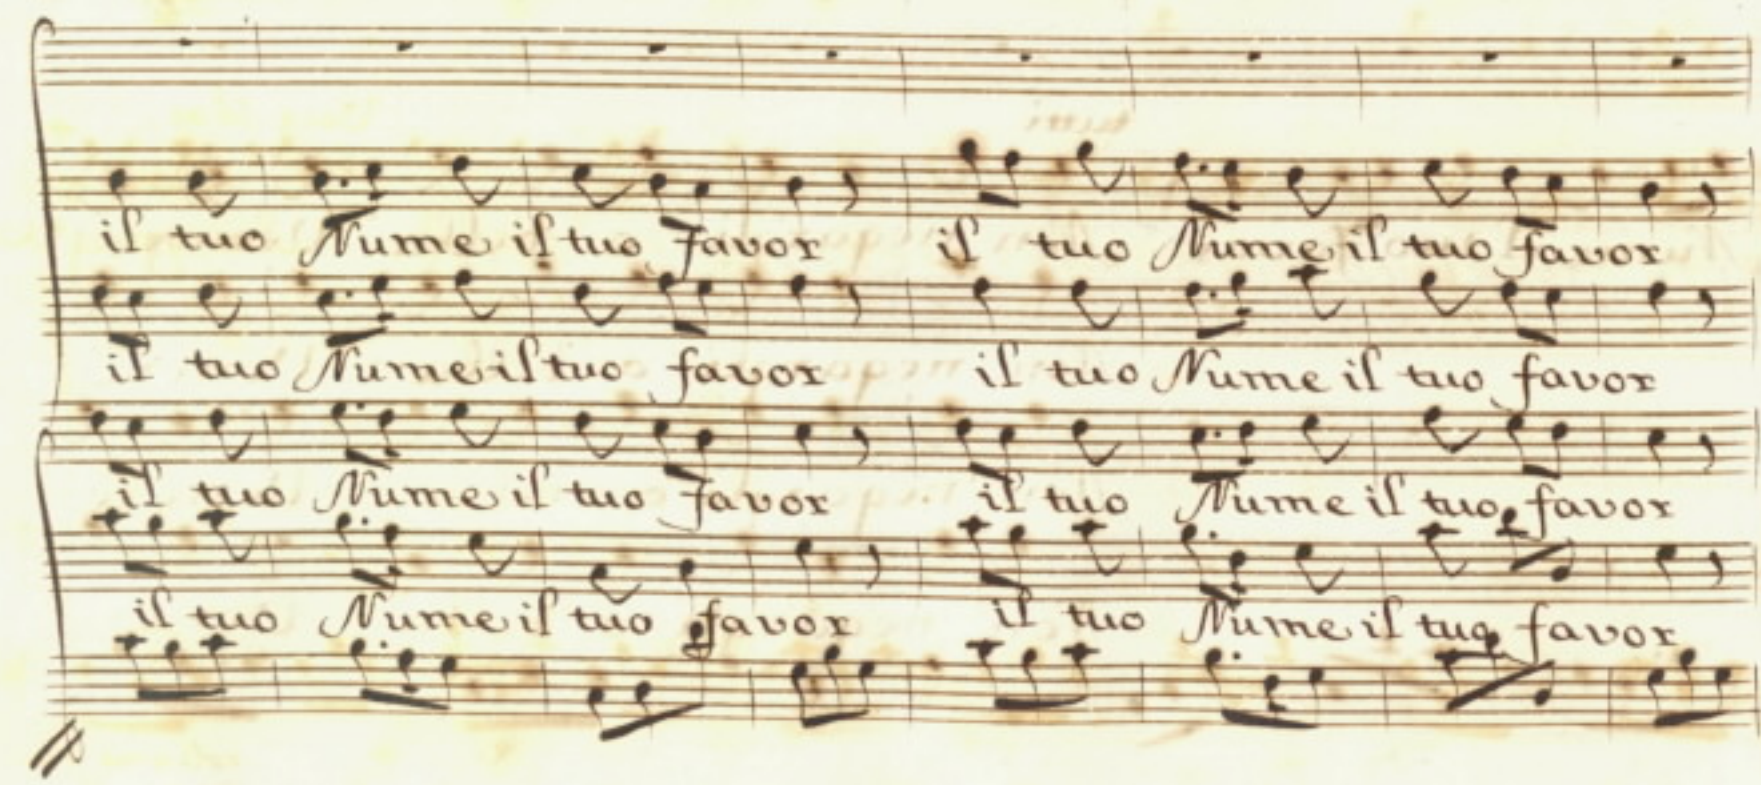 il tuo Nume il tuo favor il tuo Nume il tuo favor
il tuo Nume il tuo favor il tuo Nume il tuo favor
il tuo Nume il tuo favor il tuo Nume il tuo favor
il tuo Nume il tuo favor il tuo Nume il tuo favor